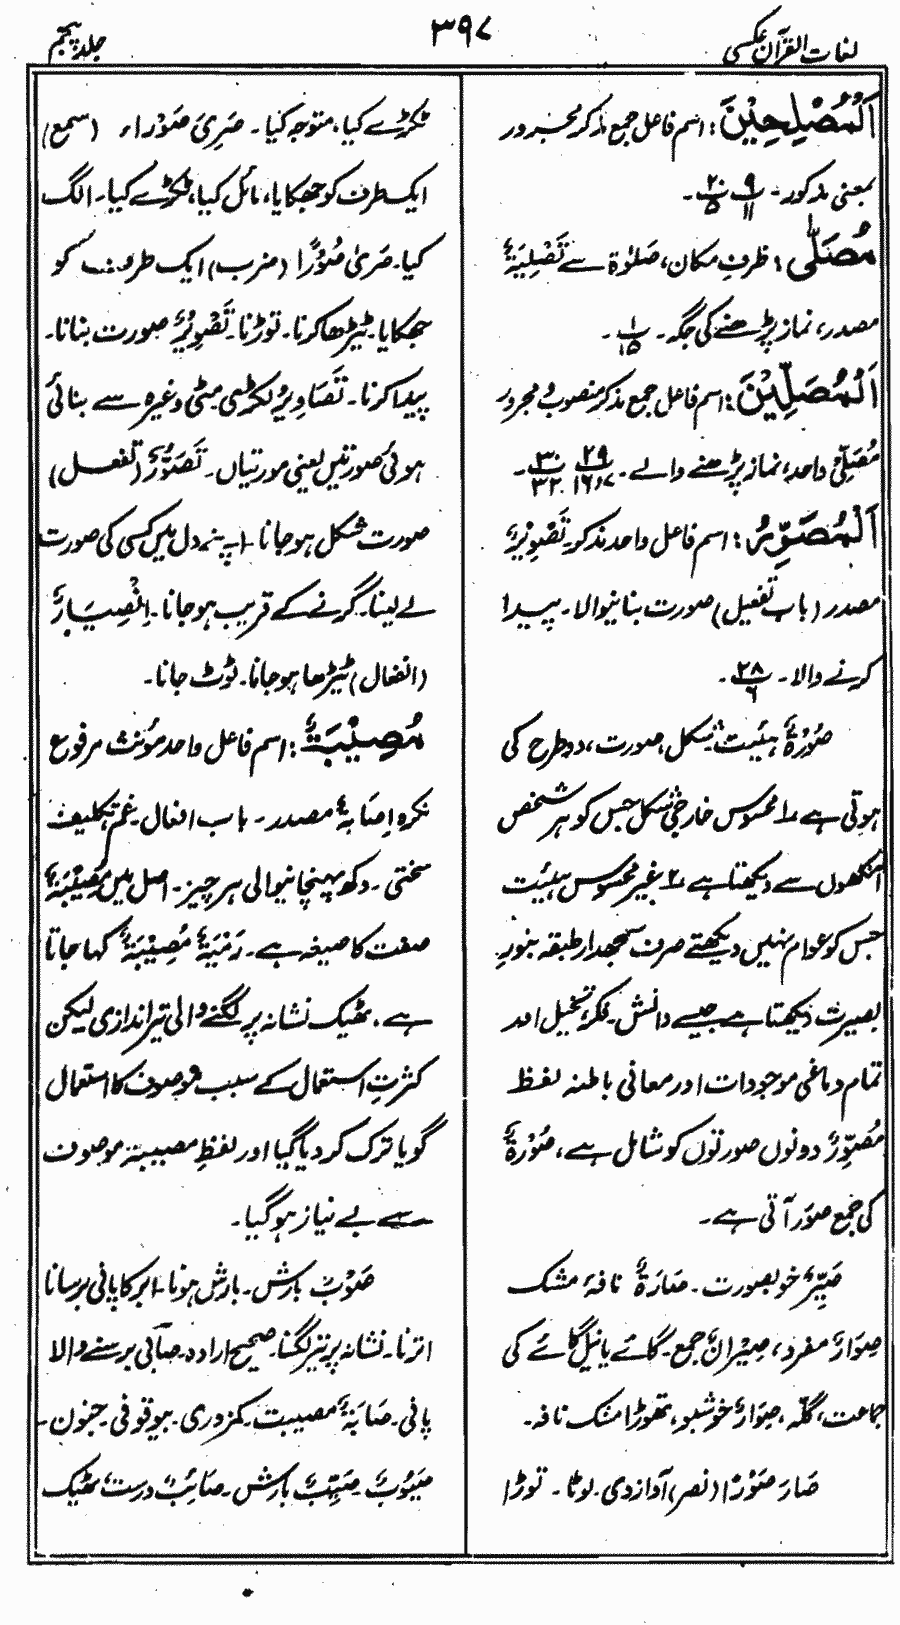 لغات القرآن عکسی
۳۹۷
جلد پنجم
اَلْمُصْلِحِیْنَ : اسم فاعل جمع مذکر مجرور
بمعنی مذکور۔ پ ۹/۱۱ پ ۲۰/۵ ۔
مُصَلًّی : ظرفِ مکان، صَلٰوۃ سے تَصْلِیَۃٌ
مصدر، نماز پڑھنے کی جگہ۔ پ ۱/۱۵ ۔
اَلْمُصَلِّیْنَ : اسم فاعل جمع مذکر منصوب و مجرور
مُصَلِّیٌ واحد، نماز پڑھنے والے۔ ۲۹/۱۶،۷ ۳۰/۳۲ ۔
اَلْمُصَوِّرُ : اسم فاعل واحد مذکور۔ تَصْوِیْرٌ
مصدر (باب تفعیل) صورت بنانیوالا۔ پیدا
کرنے والا۔ پ ۲۸/۶ ۔
صُوْرَۃٌ ہیئیت، شکل، صورت، دو طرح کی
ہوتی ہے ۱ محسوس خارجی شکل جس کو ہر شخص
آنکھوں سے دیکھتا ہے ۲ غیر محسوس ہیئیت
جس کو عوام نہیں دیکھتے صرف سمجھدار طبقہ بنورِ
بصیرت دیکھتا ہے جیسے دانش۔ فکر، تخیل اور
تمام دماغی موجودات اور معانی باطنہ لفظ
مُصَوِّرٌ دونوں صورتوں کو شامل ہے، صُوْرَۃٌ
کی جمع صُوَر آتی ہے۔
صَیِّرٌ خوبصورت۔ صَارَۃٌ نافۂ مشک
صِوَارٌ مفرد، صِیْرَانٌ جمع۔ گائے یا نیل گائے کی
جماعت، گلّہ، صِوَارٌ خوشبو، تھوڑا مشک نافہ۔
صَارَ صَوْرًا (نصر) آواز دی۔ لوٹا۔ توڑا
ٹکڑے کیا، متوجہ کیا۔ صَرِیَ صَوْراء (سمع)
ایک طرف کو جھکایا، مائل کیا، ٹکڑے کیا۔ الگ
کیا۔ صَریٰ صُوْرًا (ضرب) ایک طرف کو
جھکایا۔ ٹیڑھا کرنا۔ توڑنا۔ تَصْوِیْرٌ صورت بنانا۔
پیدا کرنا۔ تَصَاوِیرُ لکڑی مٹی وغیرہ سے بنائی
ہوئی صورتیں یعنی مورتیاں۔ تَصَوُّرٌ (تفعل)
صورت شکل ہو جانا۔ اپنے دل میں کسی کی صورت
لے لینا۔ گرنے کے قریب ہو جانا۔ اِنْصِیَارٌ
(انفعال) ٹیڑھا ہو جانا۔ ٹوٹ جانا۔
مُصِیْبَۃٌ : اسم فاعل واحد مؤنث مرفوع
نکرہ اِصَابَۃٌ مصدر۔ باب افعال۔ غم، تکلیف
سختی۔ دکھ پہنچانیوالی ہر چیز۔ اصل میں مُصِیْبَۃٌ
صفت کا صیغہ ہے۔ رَمْیَۃٌ مُصِیْبَۃٌ کہا جاتا
ہے۔ ٹھیک نشانہ پر لگنے والی تیر اندازی لیکن
کثرتِ استعمال کے سبب موصوف کا استعمال
گویا ترک کر دیا گیا اور لفظِ مصیبۃ موصوف
سے بے نیاز ہو گیا۔
صَوْبٌ بارش۔ بارش ہونا۔ ابر کا پانی برسانا
اترنا۔ نشانہ پر تیر لگنا۔ صحیح ارادہ۔ صائبٌ برسنے والا
پانی۔ صَابَۃٌ مصیبت۔ کمزوری۔ بیوقوفی۔ جنون۔
صَیُوْبٌ۔ صَیِّبٌ بارش۔ صَائِبٌ درست ٹھیک